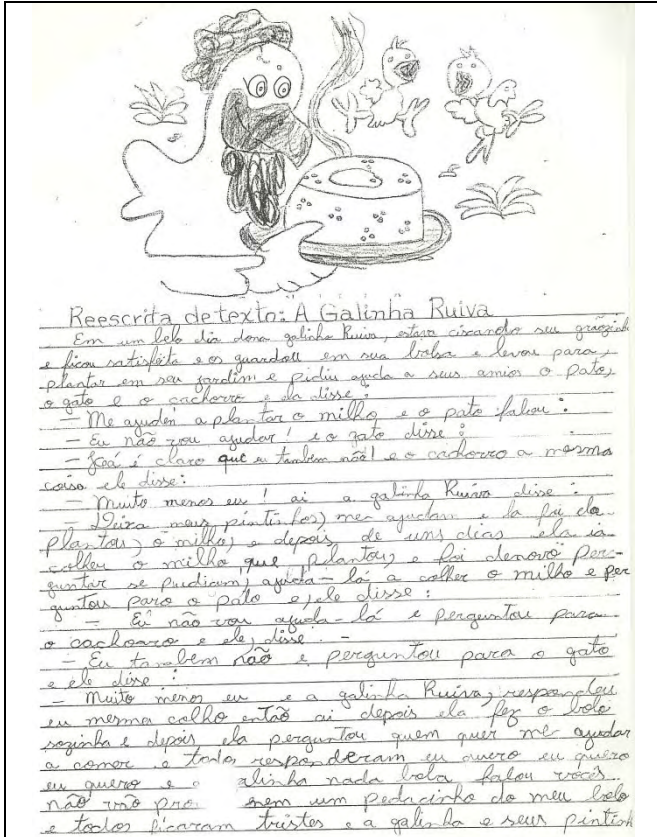 Reescrita de texto: A Galinha Ruiva
Em um belo dia dona galinha Ruiva, estava ciscando seu
e ficou satisfeita e os guardou em sua bolsa e levou para,
plantar em seu jardim e pidiu ajuda a seus amios o pato,
o gato e o cachorro e ela disse:
– Me ajuden a plantar o milho e o pato falou:
– Eu não vou ajudar! e o gato disse:
– é claro que eu tambem não! e o cachorro a mesma
coisa ele disse:
– Muito menos eu! ai a galinha Ruiva disse:
– Deixa meus pintinhos, me ajudam e la foi ela
plantou, o milho, e depois de uns dias ela ia
colher o milho, que plantou, e foi denovo per-
guntar se pudiam, ajuda-lá a colher o milho e per
guntou para o pato e, ele disse:
– Eu não vou ajuda-lá e perguntou para
o cachoaro e ele, disse. –
– Eu tambem não e perguntou para o gato
e ele disse:
– Muito menos eu e a galinha Ruiva, respondeu
eu mesma colho então ai depois ela fez o bolo
sozinha e depois ela perguntou quem quer me ajudar
a comer e todos responderam eu quero eu quero
eu quero e a alinha nada falou vocês
não vão nem um pedacinho do meu bolo
e todos ficaram tristes e a galinha e seus